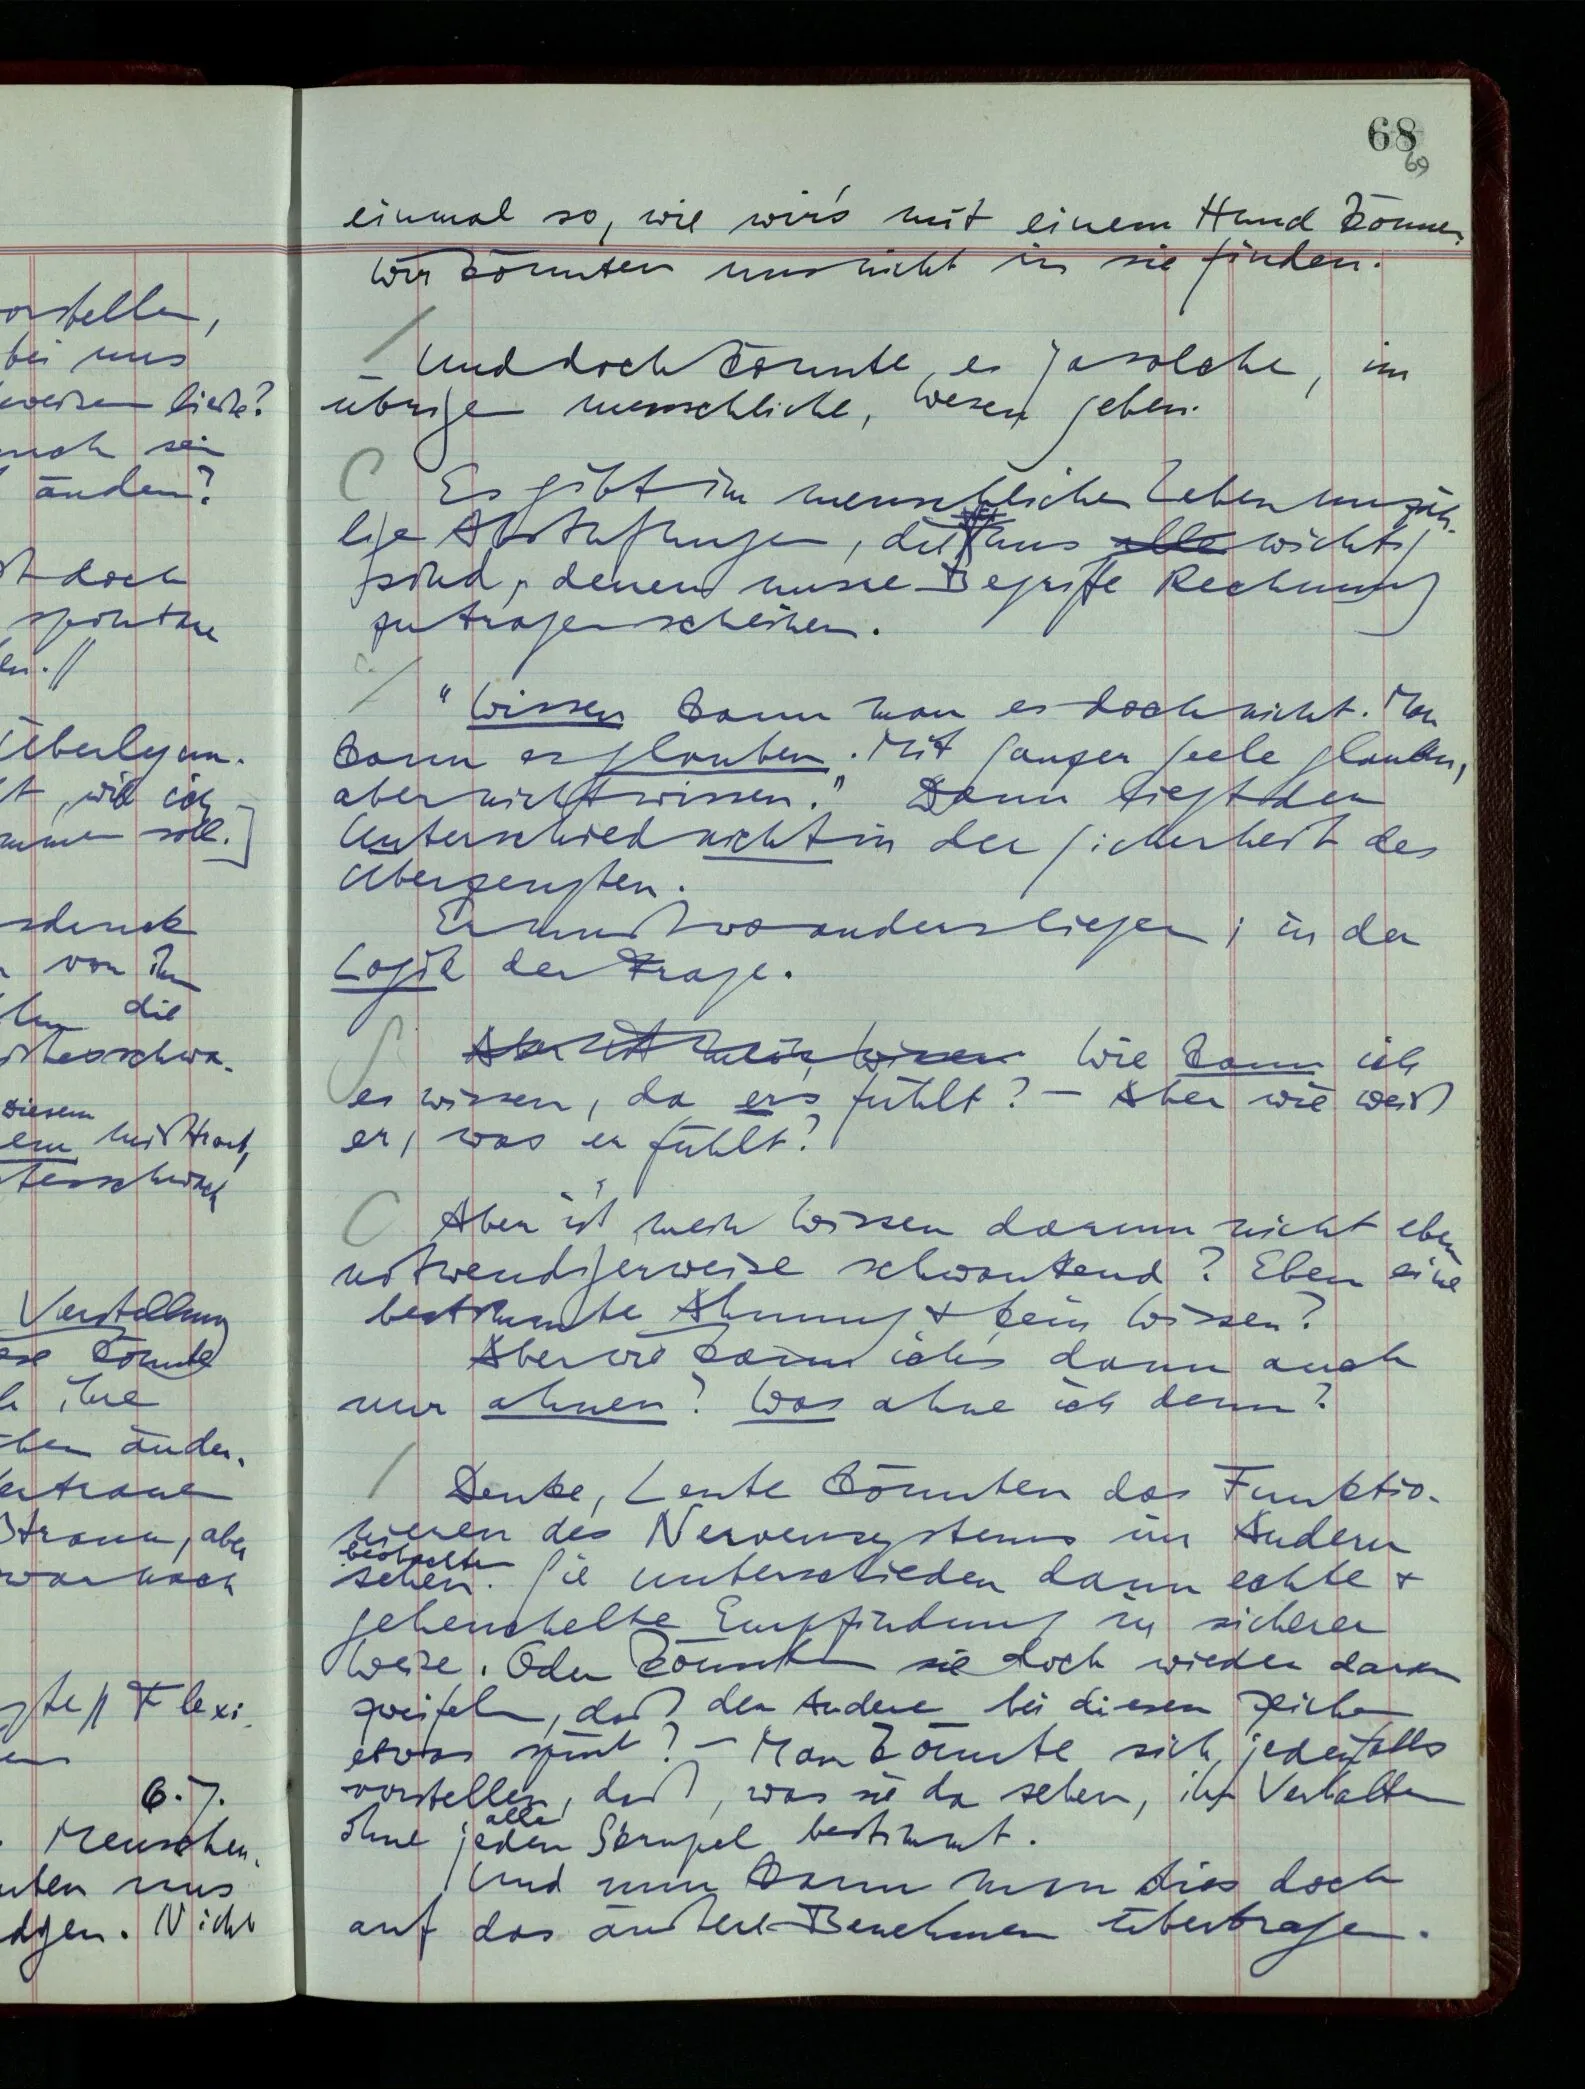 orstellen,
bei uns
beweisen ließe?
auch sein
änden?
doch
spontane
en. //
Überlegun-
t, wie ich
soll.]
sdruck
von ihm
die
istesschwa-
diesem
em
Vorstellung
könnte
ihre
ben änder-
ertrauen
, aber
war noch
// Flexi-
6.7.
Menschen-
uben uns
. Nicht
68
69
einmal so, wie wir's mit einem Hund können.
Wir könnten uns nicht in sie finden.
/ Und doch könnte es ja solche, im
übrigen menschliche, Wesen geben.
C Es gibt im menschlichen Leben unzäh-
lige Abstufungen, die uns alle wichtig
sind, denen unsre Begriffe Rechnung
zu tragen scheinen.
/ "Wissen kann man es doch nicht. Man
kann es glauben. Mit ganzer Seele glauben,
aber nicht wissen." Dann liegt der
Unterschied nicht in der Sicherheit des
Überzeugten.
Er muß wo anders liegen; in der
Logik der Frage.
S Aber ist mein Wissen Wie kann ich
es wissen, da er's fühlt? – Aber wie weiß
er, was er fühlt?
C Aber ist mein Wissen darum nicht eben
notwendigerweise schwankend? Eben eine
bestimmte Ahnung & kein Wissen?
Aber wie kann ich's dann auch
nur ahnen? Was ahne ich denn?
/ Denke, Leute könnten das Funktio-
nieren des Nervensystems im Andern
beobachten
sehen. Sie unterschieden dann echte &
geheuchelte Empfindung in sicherer
Weise. Oder könnten sie doch wieder daran
zweifeln, daß der Andere bei diesen Zeichen
etwas spürt? – Man könnte sich jedenfalls
vorstellen, daß, was sie da sehen, ihr Verhalten
alle
ohne jeden Skrupel bestimmt.
Und nun kann man dies doch
auf das äußere Benehmen übertragen.